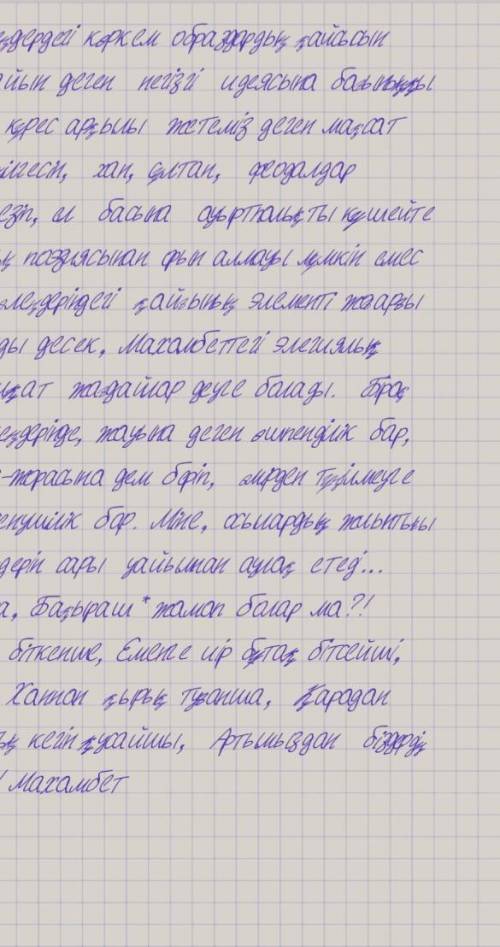 өлеңдердегі көркем образдардың қайсысын
айын деген негізгі идеясына бағынышты
күрес арқылы жетеміз деген мақсат
хан, сұлтан, феодалдар
езіп, ел басына ауыртпалықты күшейте
поэзиясынан орын алмауы мүмкін емес
өлеңдеріндегі қайғының элементі жоғарғы
ды десек, Махамбеттегі элегиялық
жағдайлар деуге болады. Бірақ
өлеңдерінде, жауына деген өшпенділік бар,
-жорасына дем беріп, өмірден түңілмеуге
бар. Міне, осылардың жиынтығы
сары уайымнан аулақ етеді...
Бақыраш* жамап болар ма?!
біткенше, Еменге иір бұтақ бітсейші,
Ханнан қырық туғанша, Қарадан
кегін қуайшы, Артымыздан біздердің
Махамбет